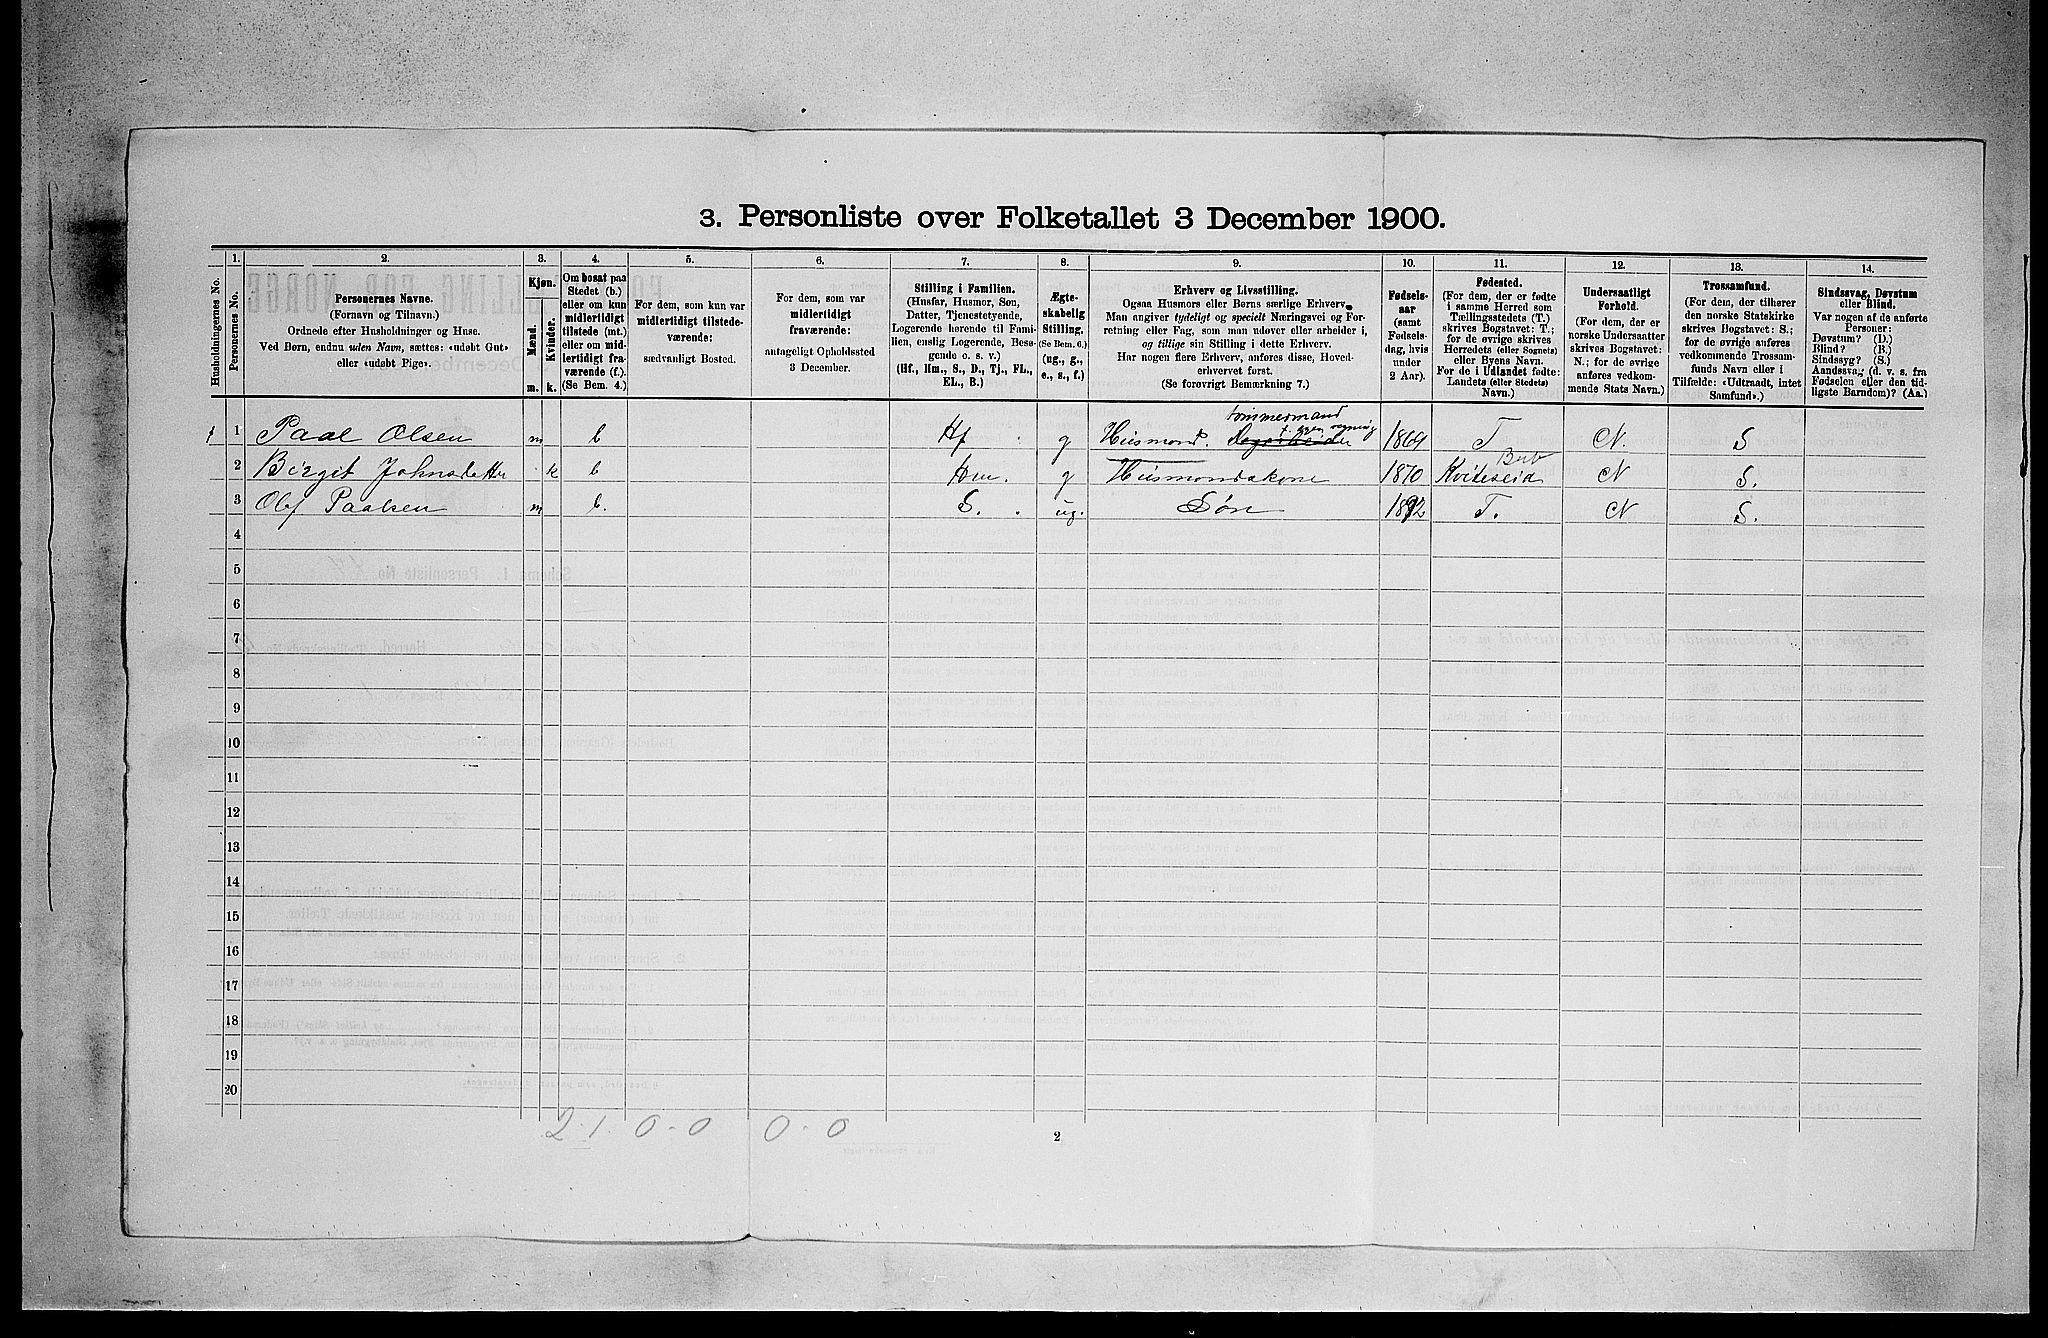 3. Personliste over Folketallet 3 December 1900.
Husholdningernes No.
1.
Personernes No.
2.
Personernes Navne.
(Fornavn og Tilnavn).
Ordnede efter Husholdninger og Huse.
Ved Børn, endnu uden Navn, sættes: «udøbt Gut»
eller «udøbt Pige».
3.
Kjøn.
Mænd.
Kvinder.
m. k.
4.
Om bosat paa
Stedet (b.)
eller om kun
midlertidigt
tilstede (mt.)
eller om mid-
lertidigt fra-
værende (f.).
(Se Bem. 4.)
5.
For dem, som kun var
midlertidigt tilstede-
værende:
sædvanligt Bosted.
6.
For dem, som var
midlertidigt
fraværende:
antageligt Opholdssted
3 December.
7.
Stilling i Familien.
(Husfar, Husmor, Søn,
Datter, Tjenestetyende,
Logerende hørende til Fami-
lien, enslig Logerende, Besø-
gende o. s. v.)
(Hf., Hm., S., D., Tj., FL.,
EL., B.)
8.
Ægte-
skabelig
Stilling.
(Se Bem. 6.)
(ug., g.,
e., s., f.)
9.
Erhverv og Livsstilling.
Ogsaa Husmors eller Børns særlige Erhverv.
Man angiver tydeligt og specielt Næringsvei og For-
retning eller Fag, som man udøver eller arbeider i,
og tillige sin Stilling i dette Erhverv.
Har nogen flere Erhverv, anføres disse, Hoved-
erhvervet først.
(Se forøvrigt Bemærkning 7.)
10.
Fødsels-
aar
(samt
Fødsels-
dag, hvis
under
2 Aar).
11.
Fødested.
(For dem, der er fødte
i samme Herred som
Tællingsstedets (T.)
skrives Bogstavet: T.;
for de øvrige skrives
Herredets (eller Sognets)
eller Byens Navn.
For de i Udlandet fødte:
Landets (eller Stedets)
Navn.)
12.
Undersaatligt
Forhold.
(For dem, der er
norske Undersaatter
skrives Bogstavet:
N.; for de øvrige
anføres vedkom-
mende Stats Navn.)
13.
Trossamfund.
(For dem, der tilhører
den norske Statskirke
skrives Bogstavet: S.;
for de øvrige anføres
vedkommende Trossam-
funds Navn eller i
Tilfælde: «Udtraadt, intet
Samfund».)
14.
Sindssvag, Døvstum
eller Blind.
Var nogen af de anførte
Personer:
Døvstum? (D.)
Blind? (B.)
Sindssyg? (S.)
Aandssvag (d. v. s. fra
Fødselen eller den tid-
ligste Barndom)? (Aa.)
tømmermand
f. egen regning
1 1 Paal Olsen m b Hf g Husmand. Dagarbeider 1864 T N. S
2 Birgit Johnsdatter k b Hm. g Husmandskone 1870 Kviteseid N S.
3 Olaf Paalsen m b. S. ug. Søn 1892 T. N S.
4
5
6
7
8
9
10
11
12
13
14
15
16
17
18
19
20
2. 1. 0-0 0-0
2